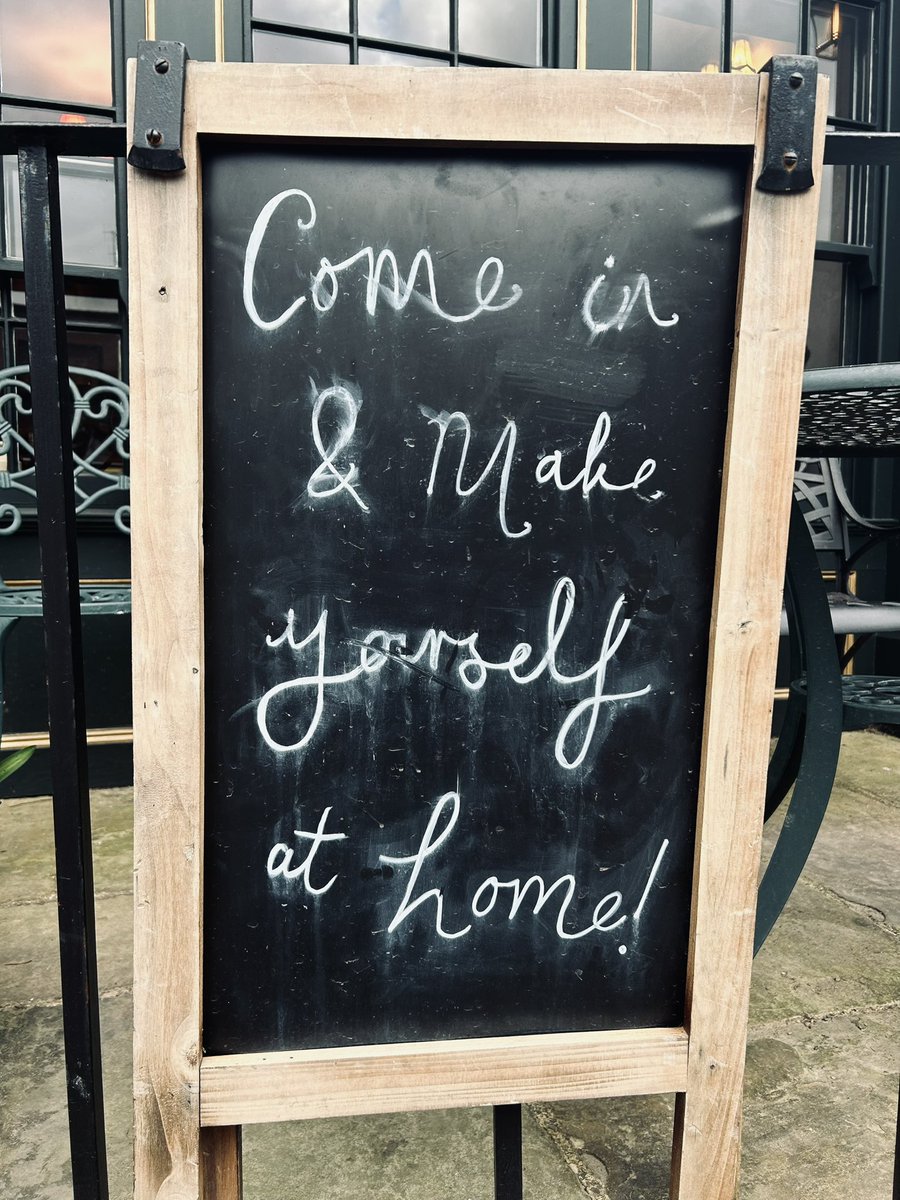 Come in
& Make
yourself
at home!